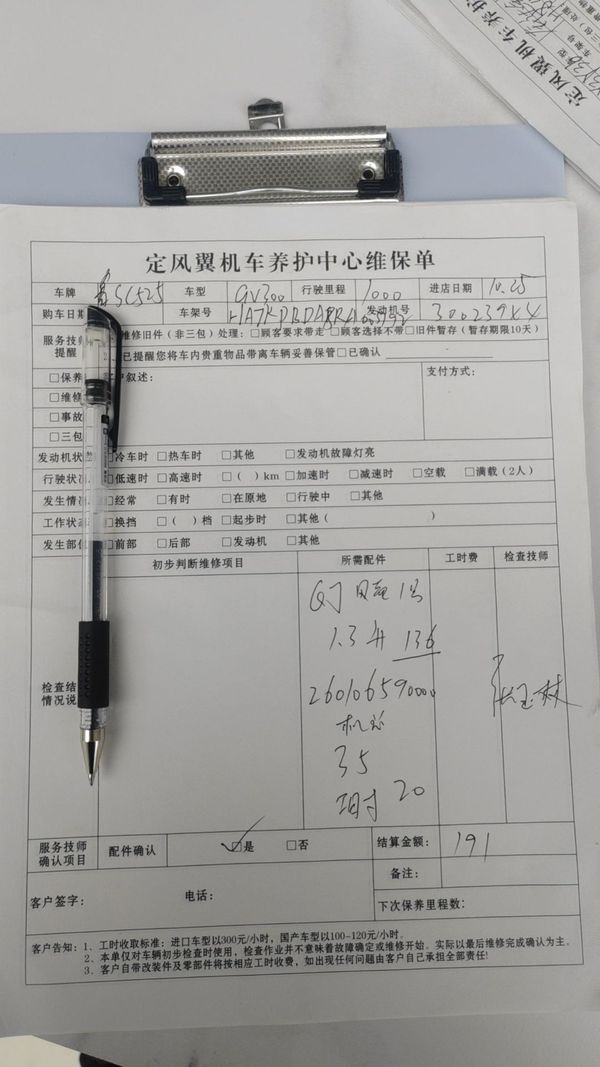 定风翼机车养护中心维保单
车牌 SC525 车型 GV300 行驶里程 1000 进店日期 10.25
购车日期 车架号 发动机号 300239X4
服务技师提醒 维修旧件（非三包）处理：□顾客要求带走 □顾客选择不带 □旧件暂存（暂存期限10天）
已提醒您将车内贵重物品带离车辆妥善保管 □已确认
□保养 户叙述： 支付方式：
□维修
□事故
□三包
发动机状态 □冷车时 □热车时 □其他 □发动机故障灯亮
行驶状况 □低速时 □高速时 □（ ）km □加速时 □减速时 □空载 □满载（2人）
发生情况 □经常 □有时 □在原地 □行驶中 □其他
工作状态 □换挡 □（ ）档 □起步时 □其他（ ）
发生部位 □前部 □后部 □发动机 □其他
初步判断维修项目 所需配件 工时费 检查技师
检查结 情况说
1.3升 136
26010659000
35
工时 20
服务技师确认项目 配件确认 ☑是 □否 结算金额： 191
备注：
客户签字： 电话： 下次保养里程数：
客户告知：1、工时收取标准：进口车型以300元/小时，国产车型以100-120元/小时。
2、本单仅对车辆初步检查时使用，检查作业并不意味着故障确定或维修开始。实际以最后维修完成确认为主。
3、客户自带改装件及零部件将按相应工时收费，如出现任何问题由客户自己承担全部责任！
定风翼机车养护